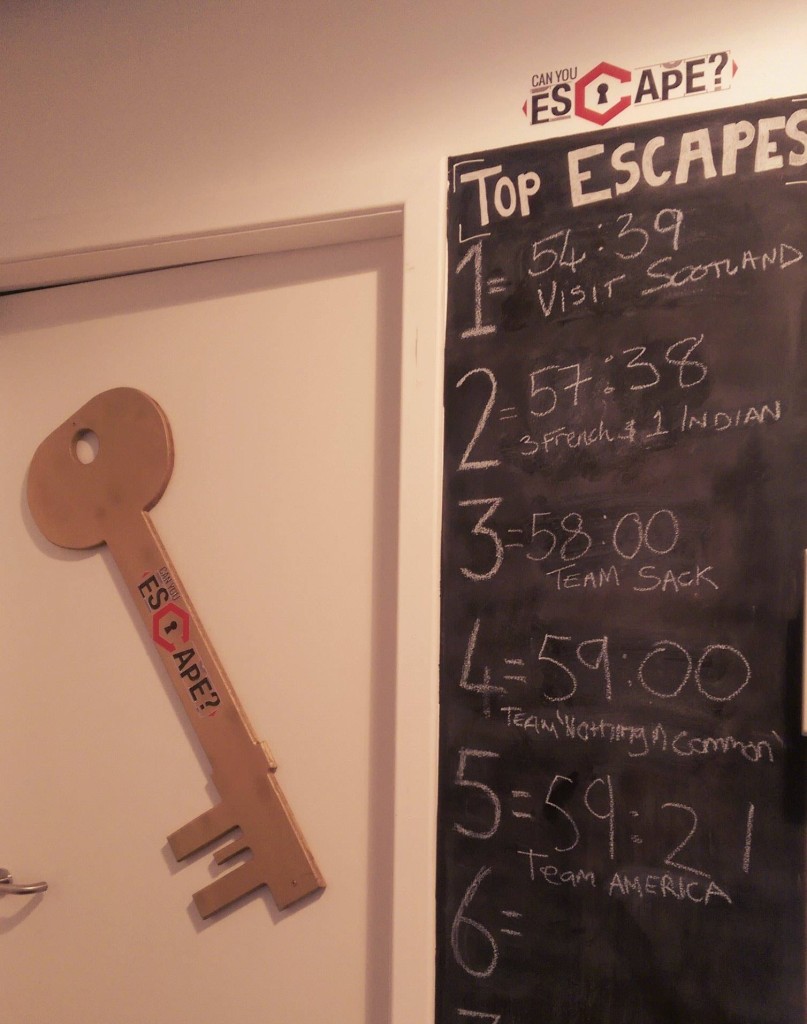 CAN YOU
ESCAPE?
TOP ESCAPES
1= 54:39
VISIT SCOTLAND
2= 57:38
3 French & 1 INDIAN
3= 58:00
TEAM SACK
4= 59:00
TEAM 'Nothing n Common'
5= 59:21
Team AMERICA
6=
CAN YOU
ESCAPE?